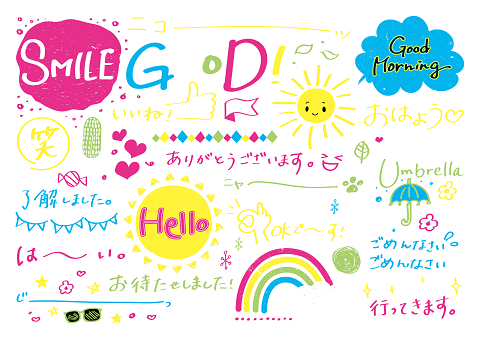 ニコーーー
SMILE
GoD!
Good
Morning
いいね!
おはよう♡
笑
ありがとうございます。
Umbrella
ニャーーー
了解しました。
Hello
OKで〜す!
ごめんなさい
ごめんなさい
は〜い。
お待たせしました!
ピーーーっ
行ってきます。